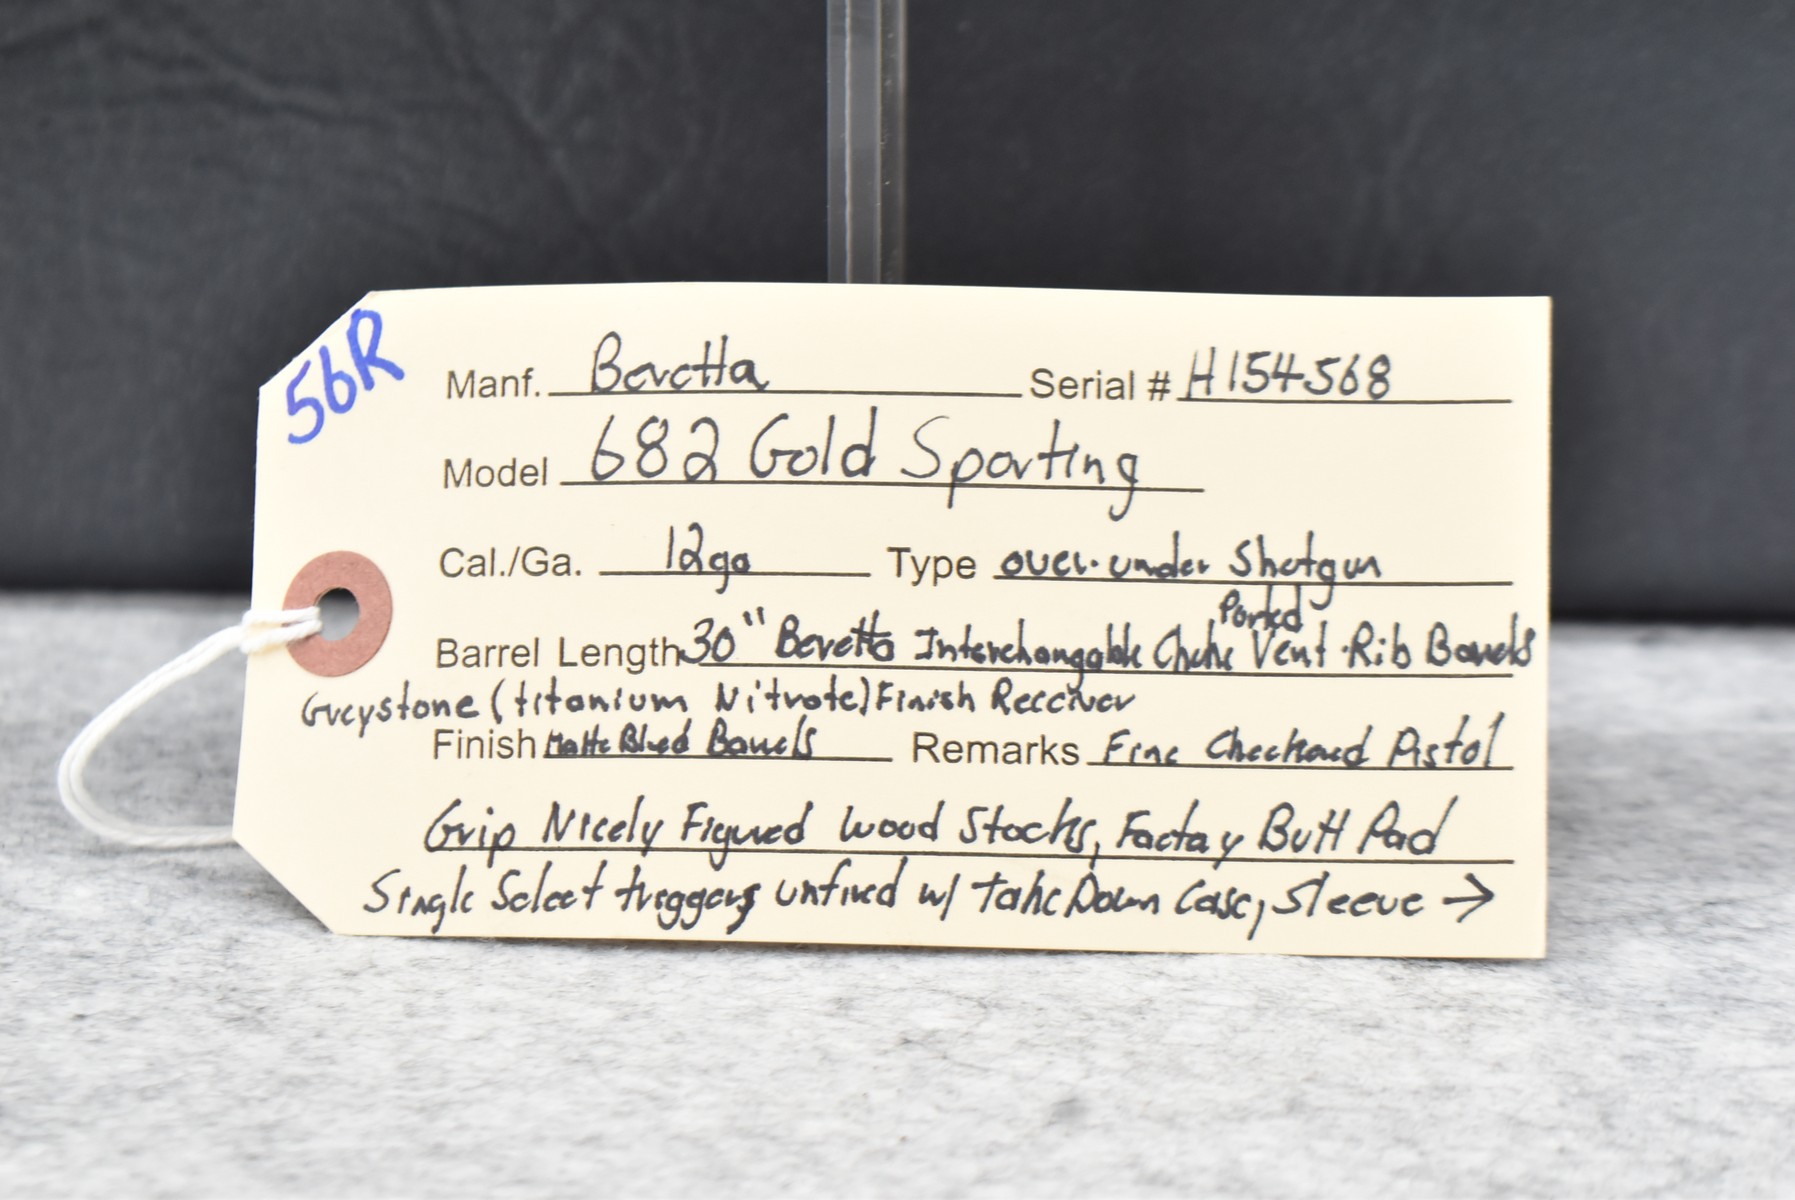 56R
Manf. Beretta Serial # H154568
Model 682 Gold Sporting
Cal./Ga. 12ga Type over-under Shotgun
Ported
Barrel Length 30" Beretta Interchangable Choke Vent-Rib Barrels
Greystone (titanium Nitrate) Finish Receiver
Finish Matte Blued Barrels Remarks Fine Checkered Pistol
Grip Nicely Figured Wood Stocks, Factory Butt Pad
Single Select triggers unfired w/ Take Down Case, Sleeve →